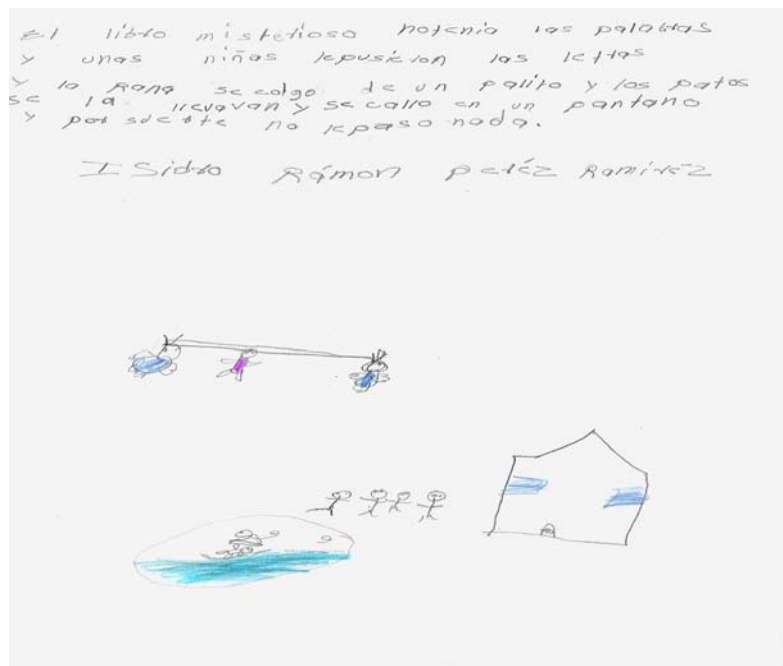 El libro misterioso notenia las palabras
y unas niñas lepusieron las letras
y la Rana se colgo de un palito y los patos
se la llevavan y se callo en un pantano
y por suerte no lepaso nada.
ISidro Rámon peréz Ramiréz